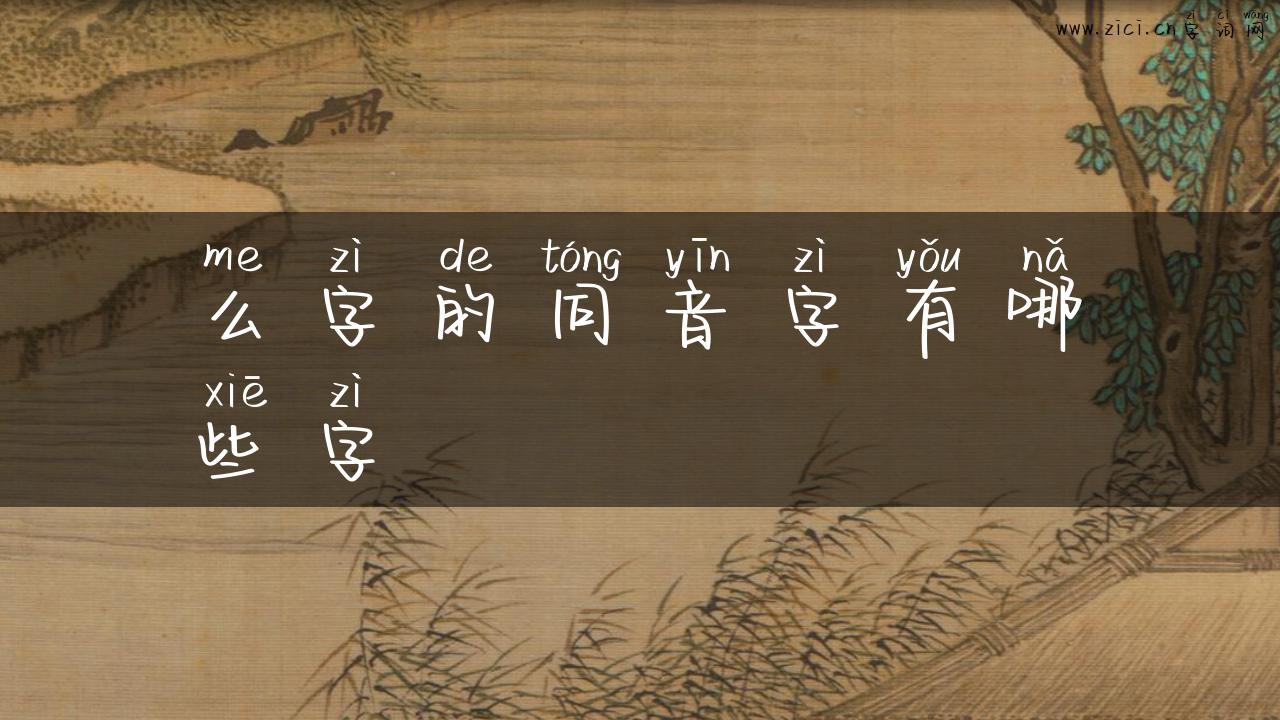 zì cí wǎng
www.zici.cn字词网
me zì de tóng yīn zì yǒu nǎ
么字的同音字有哪
xiē zì
些字